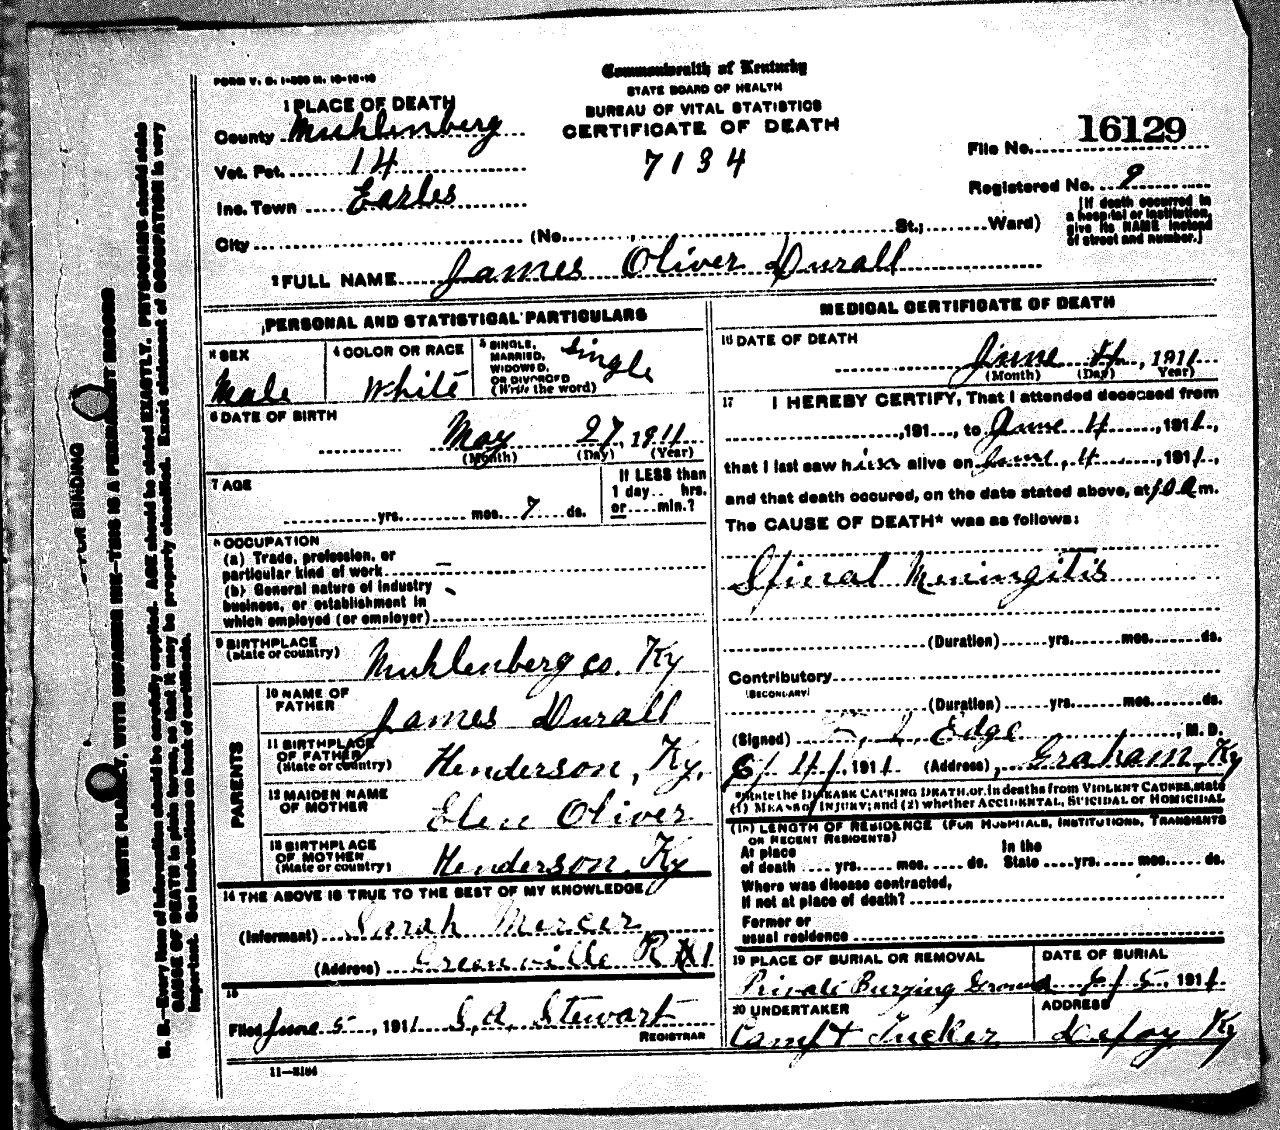 FORM V. S. 1-
Commonwealth of Kentucky
STATE BOARD OF HEALTH
BUREAU OF VITAL STATISTICS
CERTIFICATE OF DEATH
7134
1 PLACE OF DEATH
County Muhlenberg
Vot. Pct. 14
Inc. Town Earles
City (No. St.; Ward)
File No. 16129
Registered No. 9
[If death occurred in
a hospital or institution,
give its NAME instead
of street and number.]
2 FULL NAME James Oliver Durall
PERSONAL AND STATISTICAL PARTICULARS
3 SEX
Male
4 COLOR OR RACE
White
5 SINGLE,
MARRIED,
WIDOWED,
OR DIVORCED
(Write the word)
Single
6 DATE OF BIRTH
May 27, 1911
(Month) (Day) (Year)
7 AGE
yrs. mos. 7 ds.
If LESS than
1 day.. hrs.
or....min.?
8 OCCUPATION
(a) Trade, profession, or
particular kind of work
(b) General nature of industry
business, or establishment in
which employed (or employer)
9 BIRTHPLACE
(State or country)
Muhlenberg co. Ky
PARENTS
10 NAME OF
FATHER
James Durall
11 BIRTHPLACE
OF FATHER
(State or country)
Henderson, Ky.
12 MAIDEN NAME
OF MOTHER
Elen Oliver
13 BIRTHPLACE
OF MOTHER
(State or country)
Henderson, Ky
14 THE ABOVE IS TRUE TO THE BEST OF MY KNOWLEDGE
(Informant) Sarah Mercer
(Address) Greenville R #1
15
Filed June 5, 1911 S. A. Stewart
REGISTRAR
11—
MEDICAL CERTIFICATE OF DEATH
16 DATE OF DEATH
June 4, 1911
(Month) (Day) (Year)
17 I HEREBY CERTIFY, That I attended deceased from
,191..., to June 4, 1911,
that I last saw him alive on June, 4, 1911,
and that death occured, on the date stated above, at 10 a m.
The CAUSE OF DEATH* was as follows:
Spinal Meningitis
(Duration) yrs. mos. ds.
Contributory
(SECONDARY)
(Duration) yrs. mos. ds.
(Signed) Edge, M. D.
6/4/, 1911 (Address), Graham, Ky
*State the DISEASE CAUSING DEATH, or, in deaths from VIOLENT CAUSES, state
(1) MEANS OF INJURY; and (2) whether ACCIDENTAL, SUICIDAL or HOMICIDAL
(18) LENGTH OF RESIDENCE (FOR HOSPITALS, INSTITUTIONS, TRANSIENTS
OR RECENT RESIDENTS)
At place
of death .... yrs. mos. ds.
In the
State yrs. mos. ds.
Where was disease contracted,
If not at place of death?
Former or
usual residence
19 PLACE OF BURIAL OR REMOVAL
Private Burying Ground
DATE OF BURIAL
6/5, 1911
20 UNDERTAKER
Camp & Tucker
ADDRESS
Depoy Ky
FOR BINDING
WRITE PLAINLY, WITH UNFADING INK—THIS IS A PERMANENT RECORD
N. B.—Every item of information should be carefully supplied. AGE should be stated EXACTLY. PHYSICIANS should state
CAUSE OF DEATH in plain terms, so that it may be properly classified. Exact statement of OCCUPATION is very
important. See instructions on back of certificate.